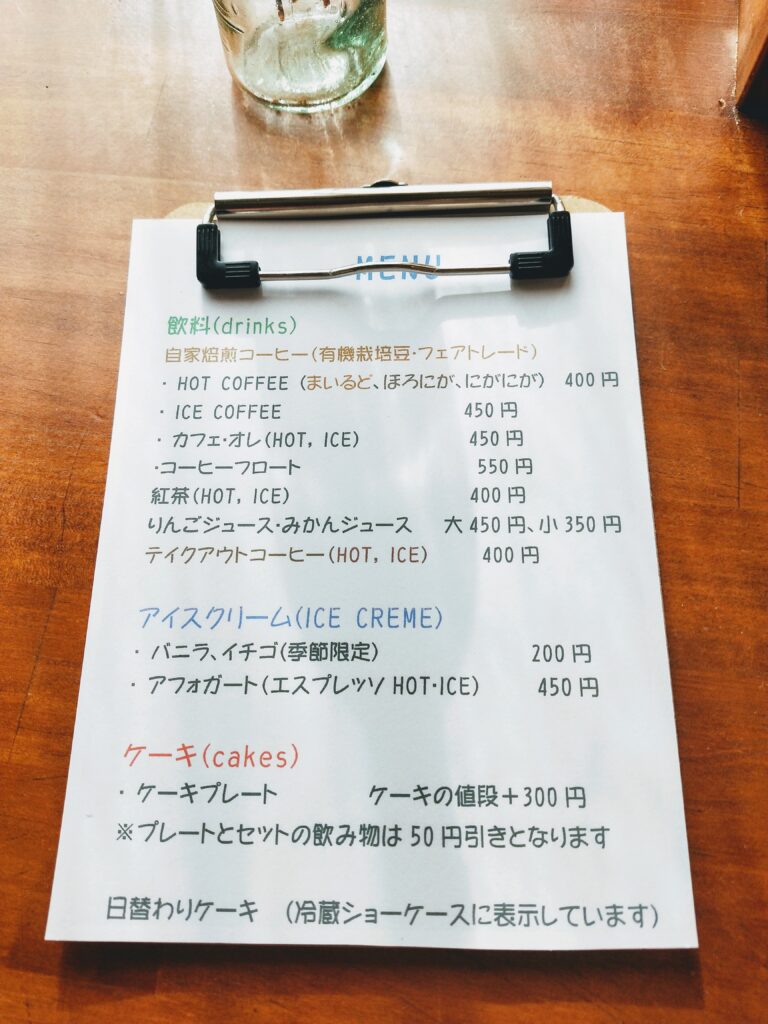 MENU
飲料(drinks)
自家焙煎コーヒー(有機栽培豆・フェアトレード)
・HOT COFFEE (まいるど、ほろにが、にがにが) 400円
・ICE COFFEE 450円
・カフェ・オレ(HOT, ICE) 450円
・コーヒーフロート 550円
紅茶(HOT, ICE) 400円
りんごジュース・みかんジュース 大450円、小350円
テイクアウトコーヒー(HOT, ICE) 400円
アイスクリーム(ICE CREME)
・バニラ、イチゴ(季節限定) 200円
・アフォガート(エスプレッソHOT・ICE) 450円
ケーキ(cakes)
・ケーキプレート ケーキの値段+300円
※プレートとセットの飲み物は50円引きとなります
日替わりケーキ (冷蔵ショーケースに表示しています)